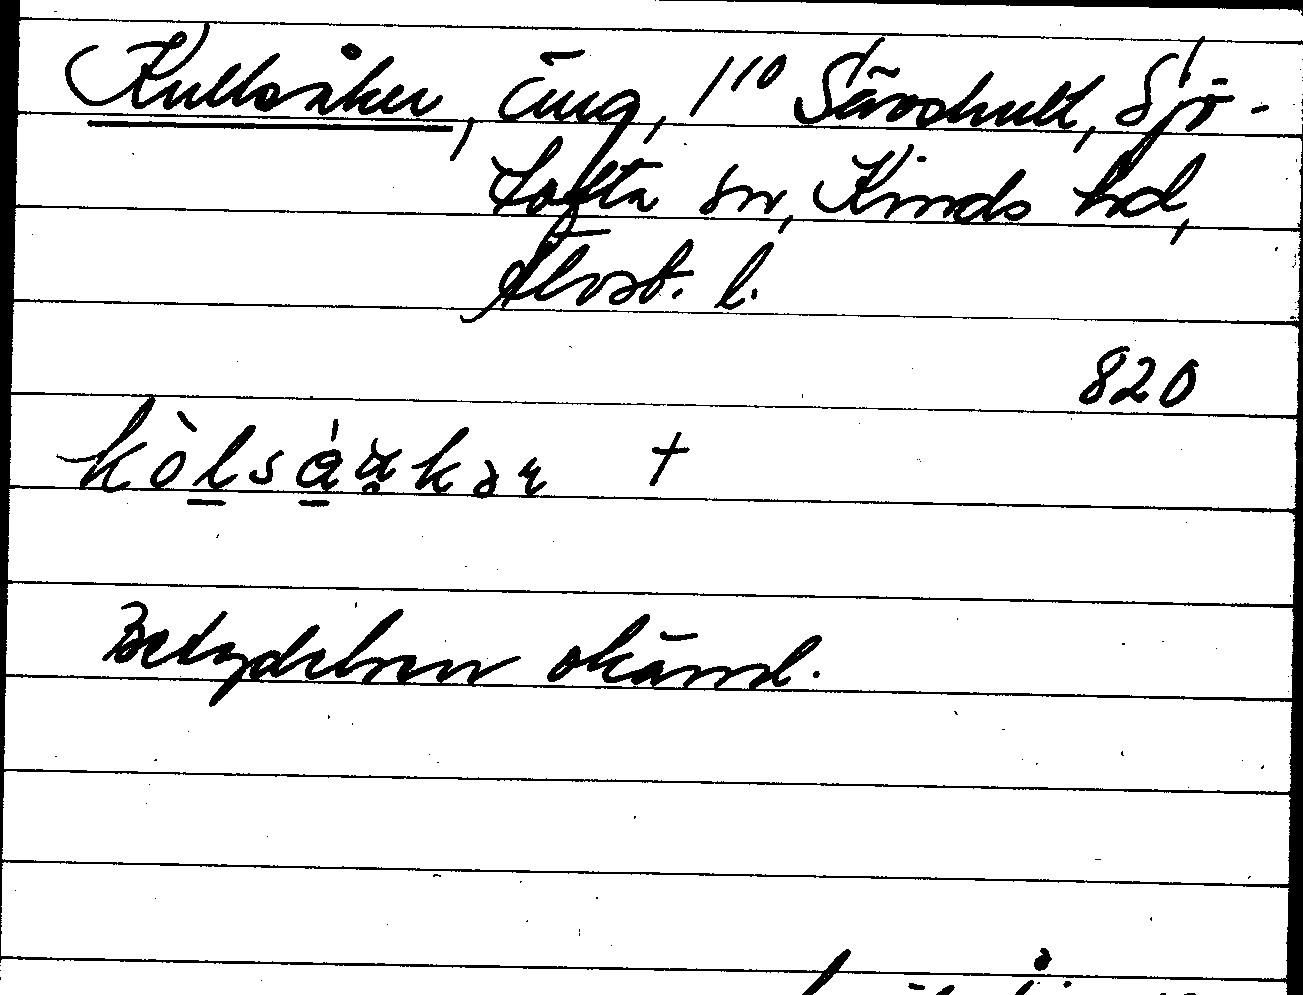 Kullsåker, äng, 110 Sävshult, Sjö-
tofta sn, Kinds hd,
Älvsb. l.
820
kòlsáa̤kər +
Betydelsen okänd.